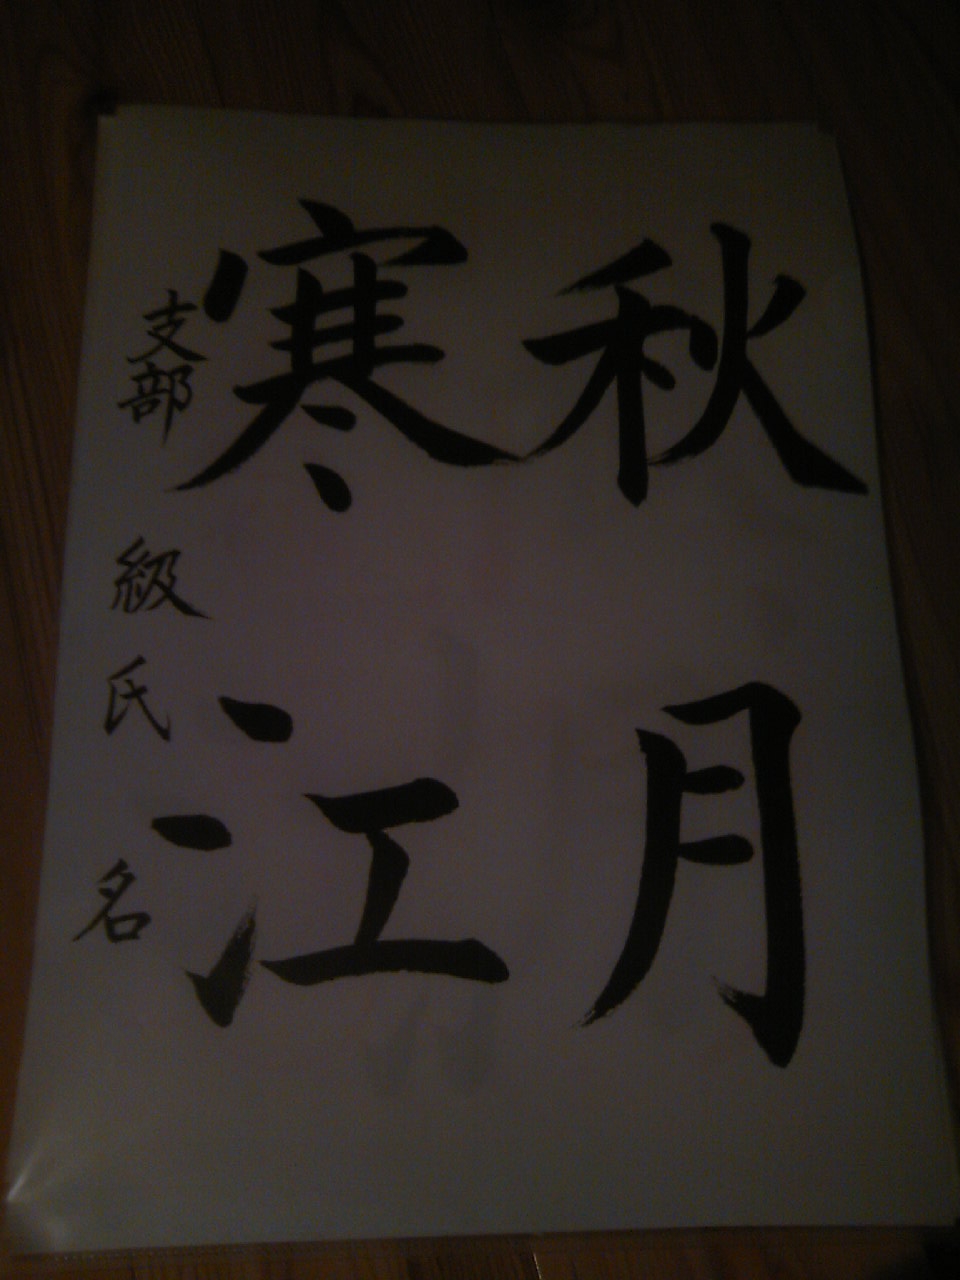 秋月
寒江
支部 級 氏 名